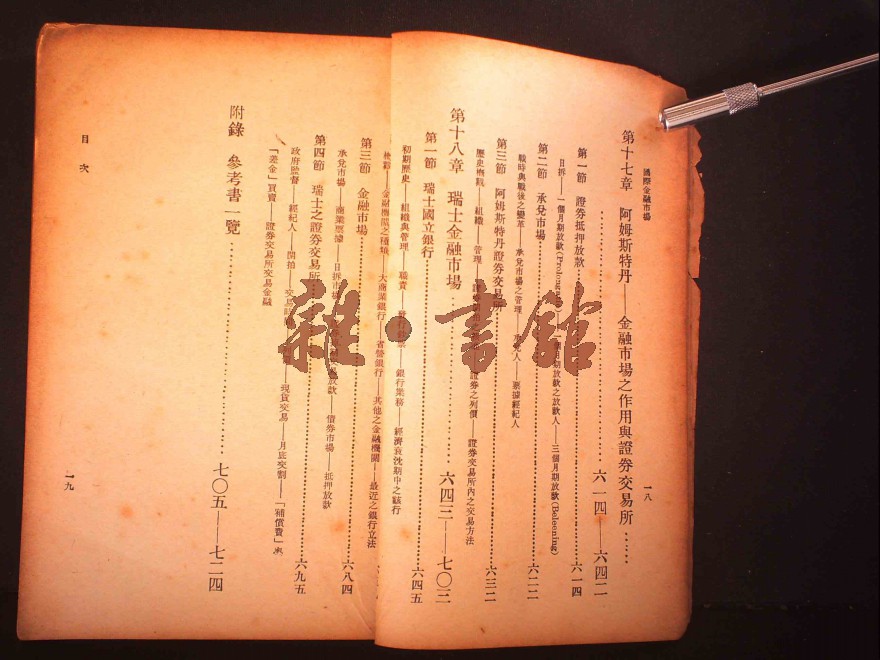 國際金融市場
一八
第十七章 阿姆斯特丹——金融市場之作用與證券交易所……
……六一四——六四二
第一節 證券抵押放款……六一四
日拆——一個月期放款(Prolongation) 月期放款之放款人——三個月期放款(Beleening)
第二節 承兌市場……六二二
戰時與戰後之變革——承兌市場之管理 人——票據經紀人
第三節 阿姆斯特丹證券交易所……六三二
歷史概觀——組織——管理 證券之列價——證券交易所內之交易方法
第十八章 瑞士金融市場……六四三——七〇三
第一節 瑞士國立銀行……六四五
初期歷史——組織與管理——職責 銀行業務——經濟衰沈期中之該行
金融機關之種類 大商業銀行——省營銀行——其他之金融機關——最近之銀行立法
第三節 金融市場……六八四
承兌市場——商業票據——日拆市場 放款——債券市場——抵押放款
第四節 瑞士之證券交易所……六九五
政府監督——經紀人——開拍——交易 現貨交易——月底交割——「補償費」與
「差金」買賣——證券交易所交易金融
附錄 參考書一覽……七〇五——七二四
目次
一九
雜·書館